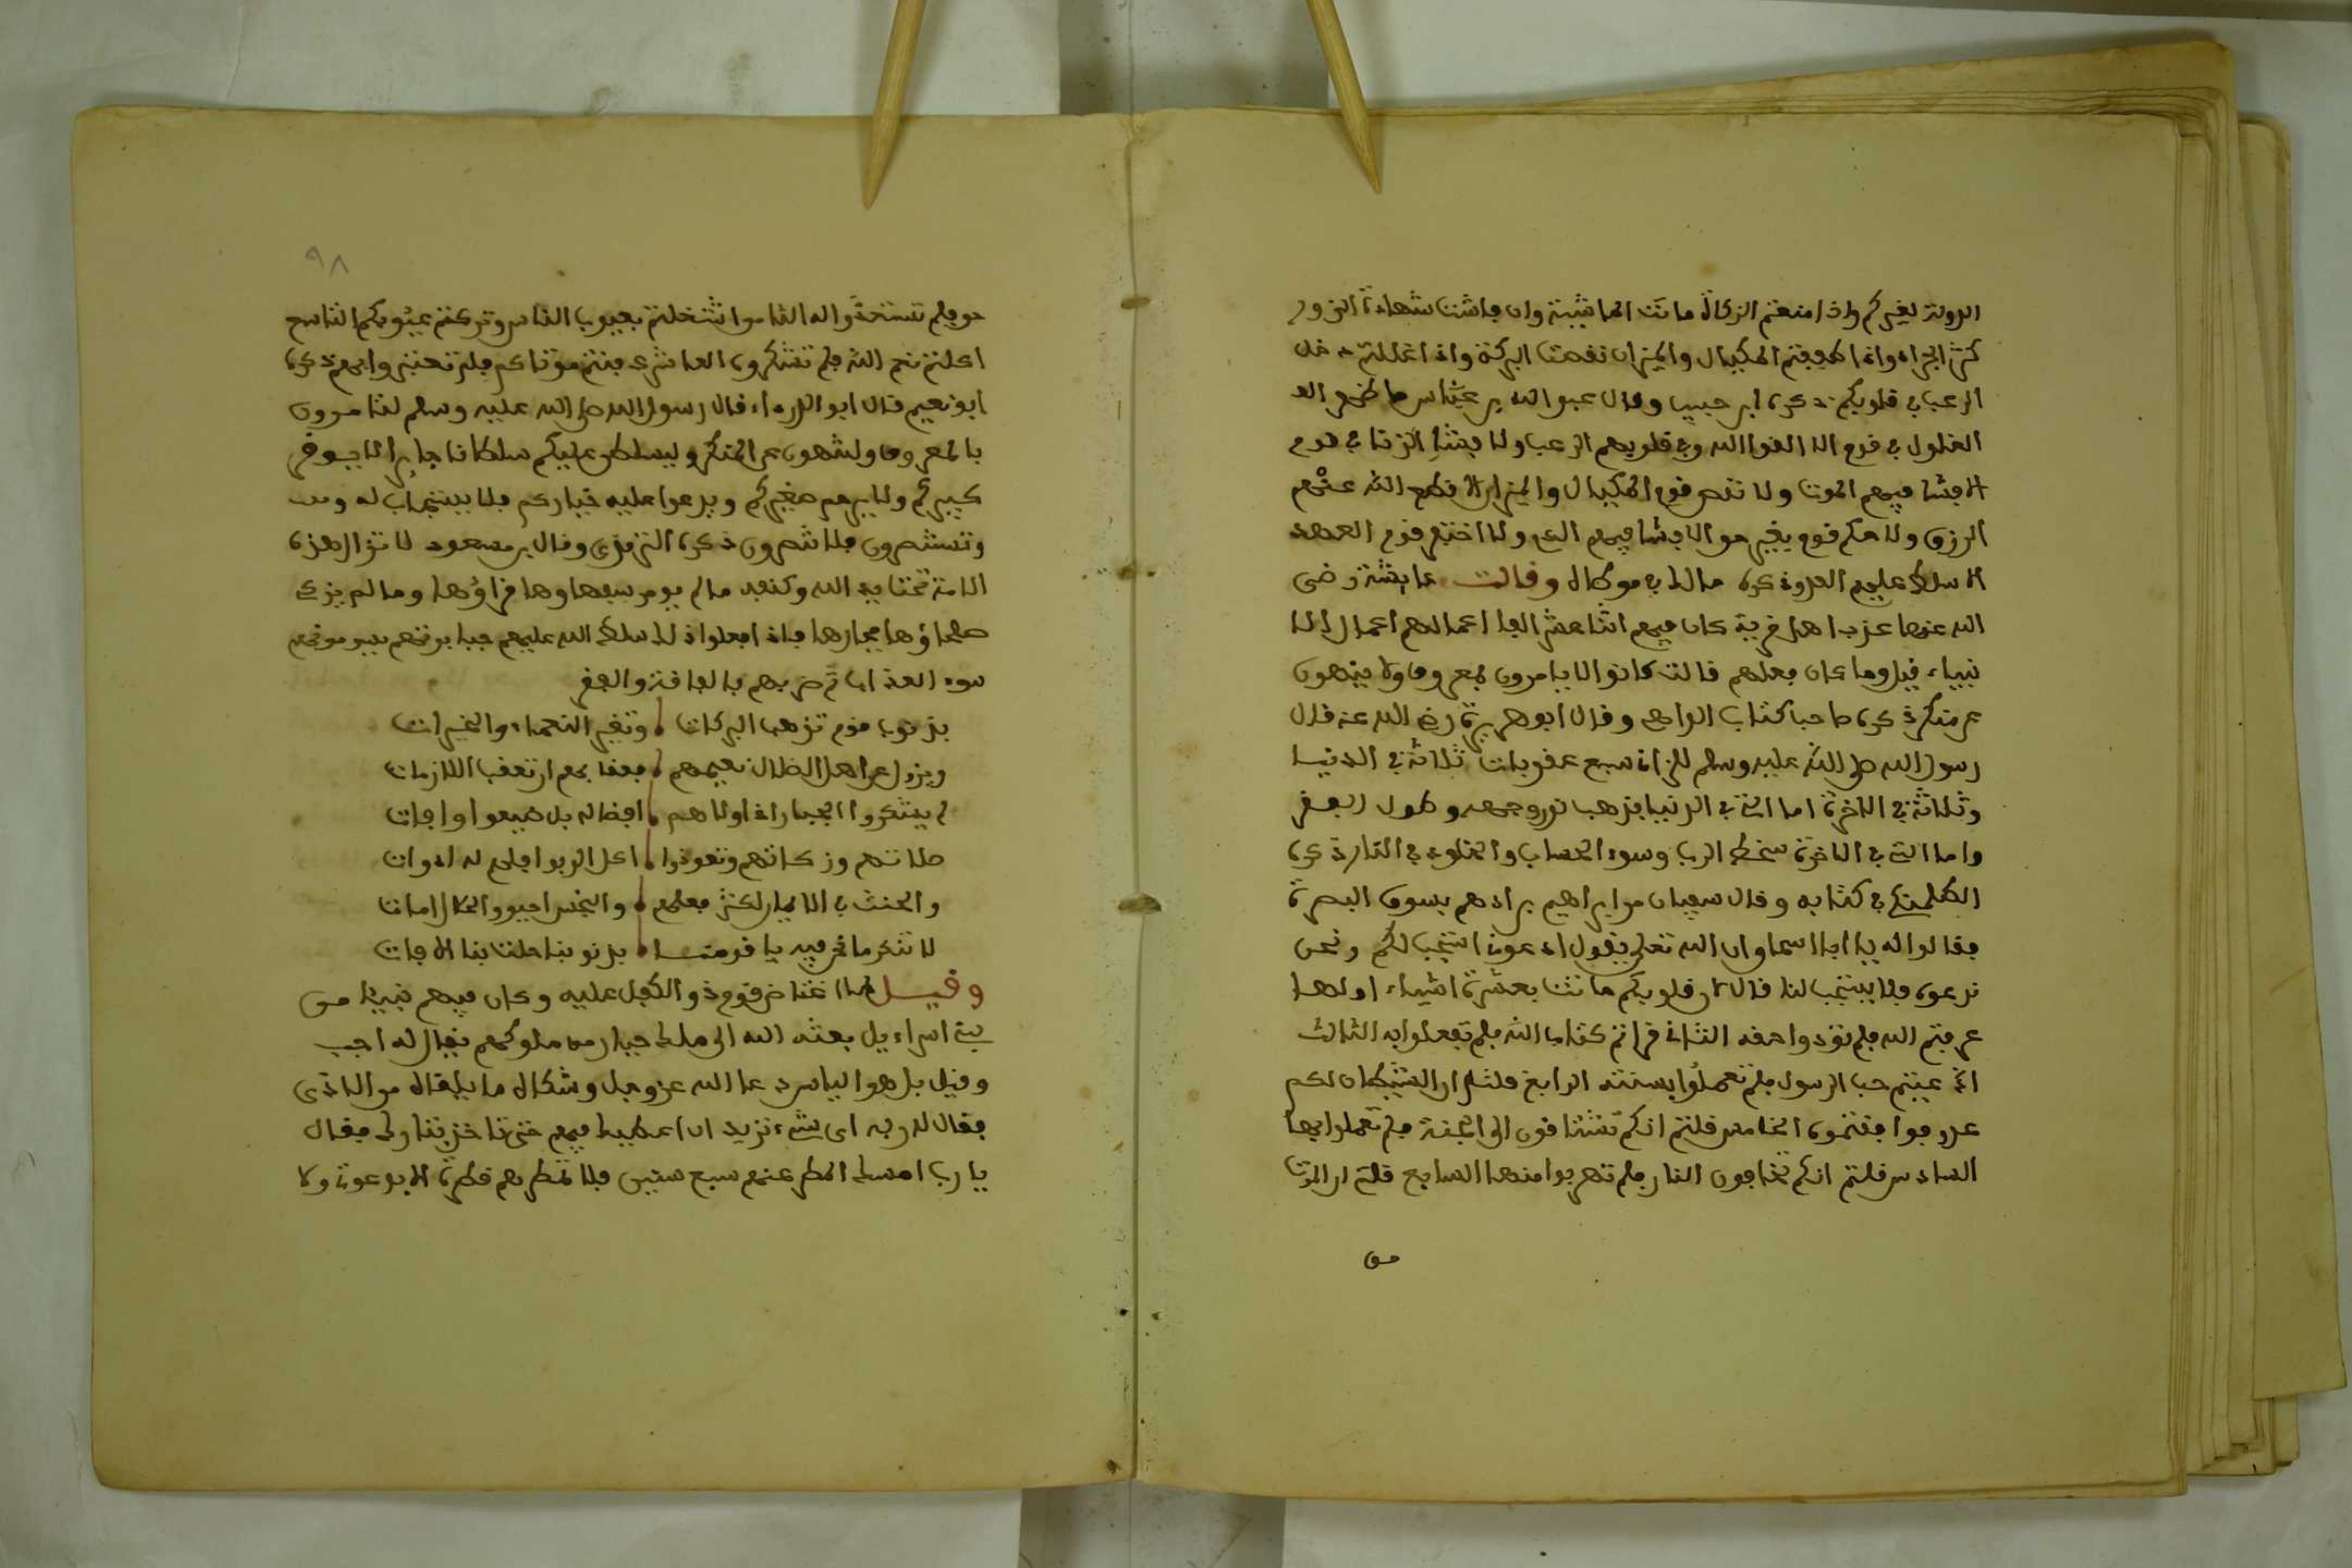 الدولة لغيركم واذا منعتم الزكاة ماتت الماشية وان فاشت شهادة الزور
كثر الجراد واذا طففتم المكيال والميزان نقصت البركة واذا غللتم دخل
الرعب في قلوبكم ذكره ابن حبيب وقال عبد الله بن عباس ما ظهر
الغلول في قوم الا القى الله في قلوبهم الرعب ولا فشا الزنا في قوم
الا فشا فيهم الموت ولا نقص قوم المكيال والميزان الا قطع الله عنهم
الرزق ولا حكم قوم بغير حق الا فشا فيهم الدم ولا اختر قوم العهد
الا سلط عليهم العدو ذكره مالك في موطاه وقالت عايشة رضي
الله عنها عذب اهل قرية كان فيهم اثنا عشر الفا اعمالهم اعمال الا
نبياء قيل وما كان فعلهم قالت كانوا لا يامرون بمعروف ولا ينهون
عن منكر ذكره صاحب كتاب الواضح وقال ابو هريرة رضي الله عنه قال
رسول الله صلى الله عليه وسلم للزاني سبع عقوبات ثلاثة في الدنيا
وثلاثة في الاخرة اما التي في الدنيا يذهب نور وجهه وطول الفقر
واما التي في الاخرة سخط الرب وسوء الحساب والخلود في النار ذكره
في كتابه وقال سفيان مر ابراهيم بن ادهم بسوق البصرة
فقالوا له يا ابا اسحاق ان الله تعالى يقول ادعوني استجب لكم ونحن
ندعوه فلا يستجب لنا قال لان قلوبكم ماتت بعشرة اشياء اولها
عرفتم الله فلم تؤدوا حقه الثاني قراتم كتاب الله فلم تعملوا به الثالث
ادعيتم حب الرسول فلم تعملوا بسنته الرابع قلتم ان الشيطان لكم
عدو فوافقتموه الخامس قلتم انكم تشتاقون الى الجنة فلم تعملوا لها
السادس قلتم انكم تخافون النار فلم تهربوا منها السابع قلتم ان الموت
حق
٩٨
حق فلم تستعدوا له الثامن اشتغلتم بعيوب الناس وتركتم عيوبكم التاسع
اكلتم نعم الله فلم تشكروه العاشر دفنتم موتاكم فلم تعتبروا بهم ذكره
ابو نعيم قال ابو الدرداء قال رسول الله صلى الله عليه وسلم لتامرون
بالمعروف ولتنهون عن المنكر وليسلطن عليكم سلطانا جايرا لا يوقر
كبيركم ولا يرحم صغيركم ويدعوا عليه خياركم فلا يستجاب له
وتستنصرون فلا تنصرون ذكره الترمذي وقال بن مسعود لا تزال هذه
الامة تحت يد الله وكنفه مالم يومر سفهاوها قراؤها وما لم يزك
صلحاؤها فجارها فاذا فعلوا ذلك سلط الله عليهم جبابرتهم
سوء العذاب ثم ضربهم بالفاقة والفقر
بذنوب قوم تذهب البركات وتغير النعماء والخيرات
ويزول عن اهل الضلال نعيمهم
لم يشكروا الجبار اذ اولاهم افضاله بل ضيعوا اوقات
صلاتهم وزكاتهم وتعودوا اكل الربوا
والحنث في الايمان كثر فعلهم
لا تنكر ما نحن فيه يا قومنا بذنوبنا حلت بنا الافات
وقيل لما تناقض قوم ذو الكفل عليه وكان فيهم نبيا من
بني اسراءيل بعثه الله الى ملك جبار من ملوكهم يقال له اجب
وقيل بل هو الياس دعا الله عز وجل وشكا له ما يلقاه من الاذى
فقال له ربه اي شيء تريد ان اعطيك فيهم حتى تاخذ بثارك فقال
يا رب امسك المطر عنهم سبع سنين فلا تمطرهم قطرة الا بدعوتي ولا